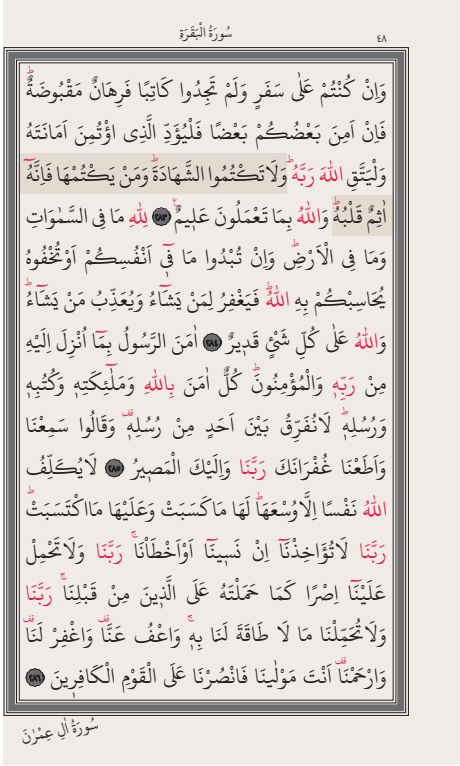 سُورَةُ الْبَقَرَةِ
٤٨
وَاِنْ كُنْتُمْ عَلٰى سَفَرٍ وَلَمْ تَجِدُوا كَاتِبًا فَرِهَانٌ مَقْبُوضَةٌۜ
فَاِنْ اَمِنَ بَعْضُكُمْ بَعْضًا فَلْيُؤَدِّ الَّذِى اؤْتُمِنَ اَمَانَتَهُ
وَلْيَتَّقِ اللّٰهَ رَبَّهُۜ وَلَا تَكْتُمُوا الشَّهَادَةَۜ وَمَنْ يَكْتُمْهَا فَاِنَّهُٓ
اٰثِمٌ قَلْبُهُۜ وَاللّٰهُ بِمَا تَعْمَلُونَ عَلِيمٌ۟ ﴿٢٨٣﴾ لِلّٰهِ مَا فِى السَّمٰوَاتِ
وَمَا فِى الْاَرْضِۜ وَاِنْ تُبْدُوا مَا فِٓى اَنْفُسِكُمْ اَوْ تُخْفُوهُ
يُحَاسِبْكُمْ بِهِ اللّٰهُۜ فَيَغْفِرُ لِمَنْ يَشَٓاءُ وَيُعَذِّبُ مَنْ يَشَٓاءُۜ
وَاللّٰهُ عَلٰى كُلِّ شَىْءٍ قَدِيرٌ ﴿٢٨٤﴾ اٰمَنَ الرَّسُولُ بِمَٓا اُنْزِلَ اِلَيْهِ
مِنْ رَبِّهِ وَالْمُؤْمِنُونَۜ كُلٌّ اٰمَنَ بِاللّٰهِ وَمَلٰٓئِكَتِهِ وَكُتُبِهِ
وَرُسُلِهِۜ لَا نُفَرِّقُ بَيْنَ اَحَدٍ مِنْ رُسُلِهِ۠ وَقَالُوا سَمِعْنَا
وَاَطَعْنَا غُفْرَانَكَ رَبَّنَا وَاِلَيْكَ الْمَصِيرُ ﴿٢٨٥﴾ لَا يُكَلِّفُ
اللّٰهُ نَفْسًا اِلَّا وُسْعَهَاۜ لَهَا مَا كَسَبَتْ وَعَلَيْهَا مَا اكْتَسَبَتْۜ
رَبَّنَا لَا تُؤَاخِذْنَٓا اِنْ نَسِينَٓا اَوْ اَخْطَاْنَاۚ رَبَّنَا وَلَا تَحْمِلْ
عَلَيْنَٓا اِصْرًا كَمَا حَمَلْتَهُ عَلَى الَّذِينَ مِنْ قَبْلِنَاۚ رَبَّنَا
وَلَا تُحَمِّلْنَا مَا لَا طَاقَةَ لَنَا بِهِۚ وَاعْفُ عَنَّا۠ وَاغْفِرْ لَنَا۠
وَارْحَمْنَا۠ اَنْتَ مَوْلٰينَا فَانْصُرْنَا عَلَى الْقَوْمِ الْكَافِرِينَ ﴿٢٨٦﴾
سُورَةُ اٰلِ عِمْرٰنَ